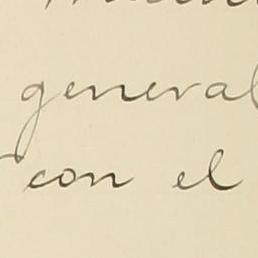 general
con el